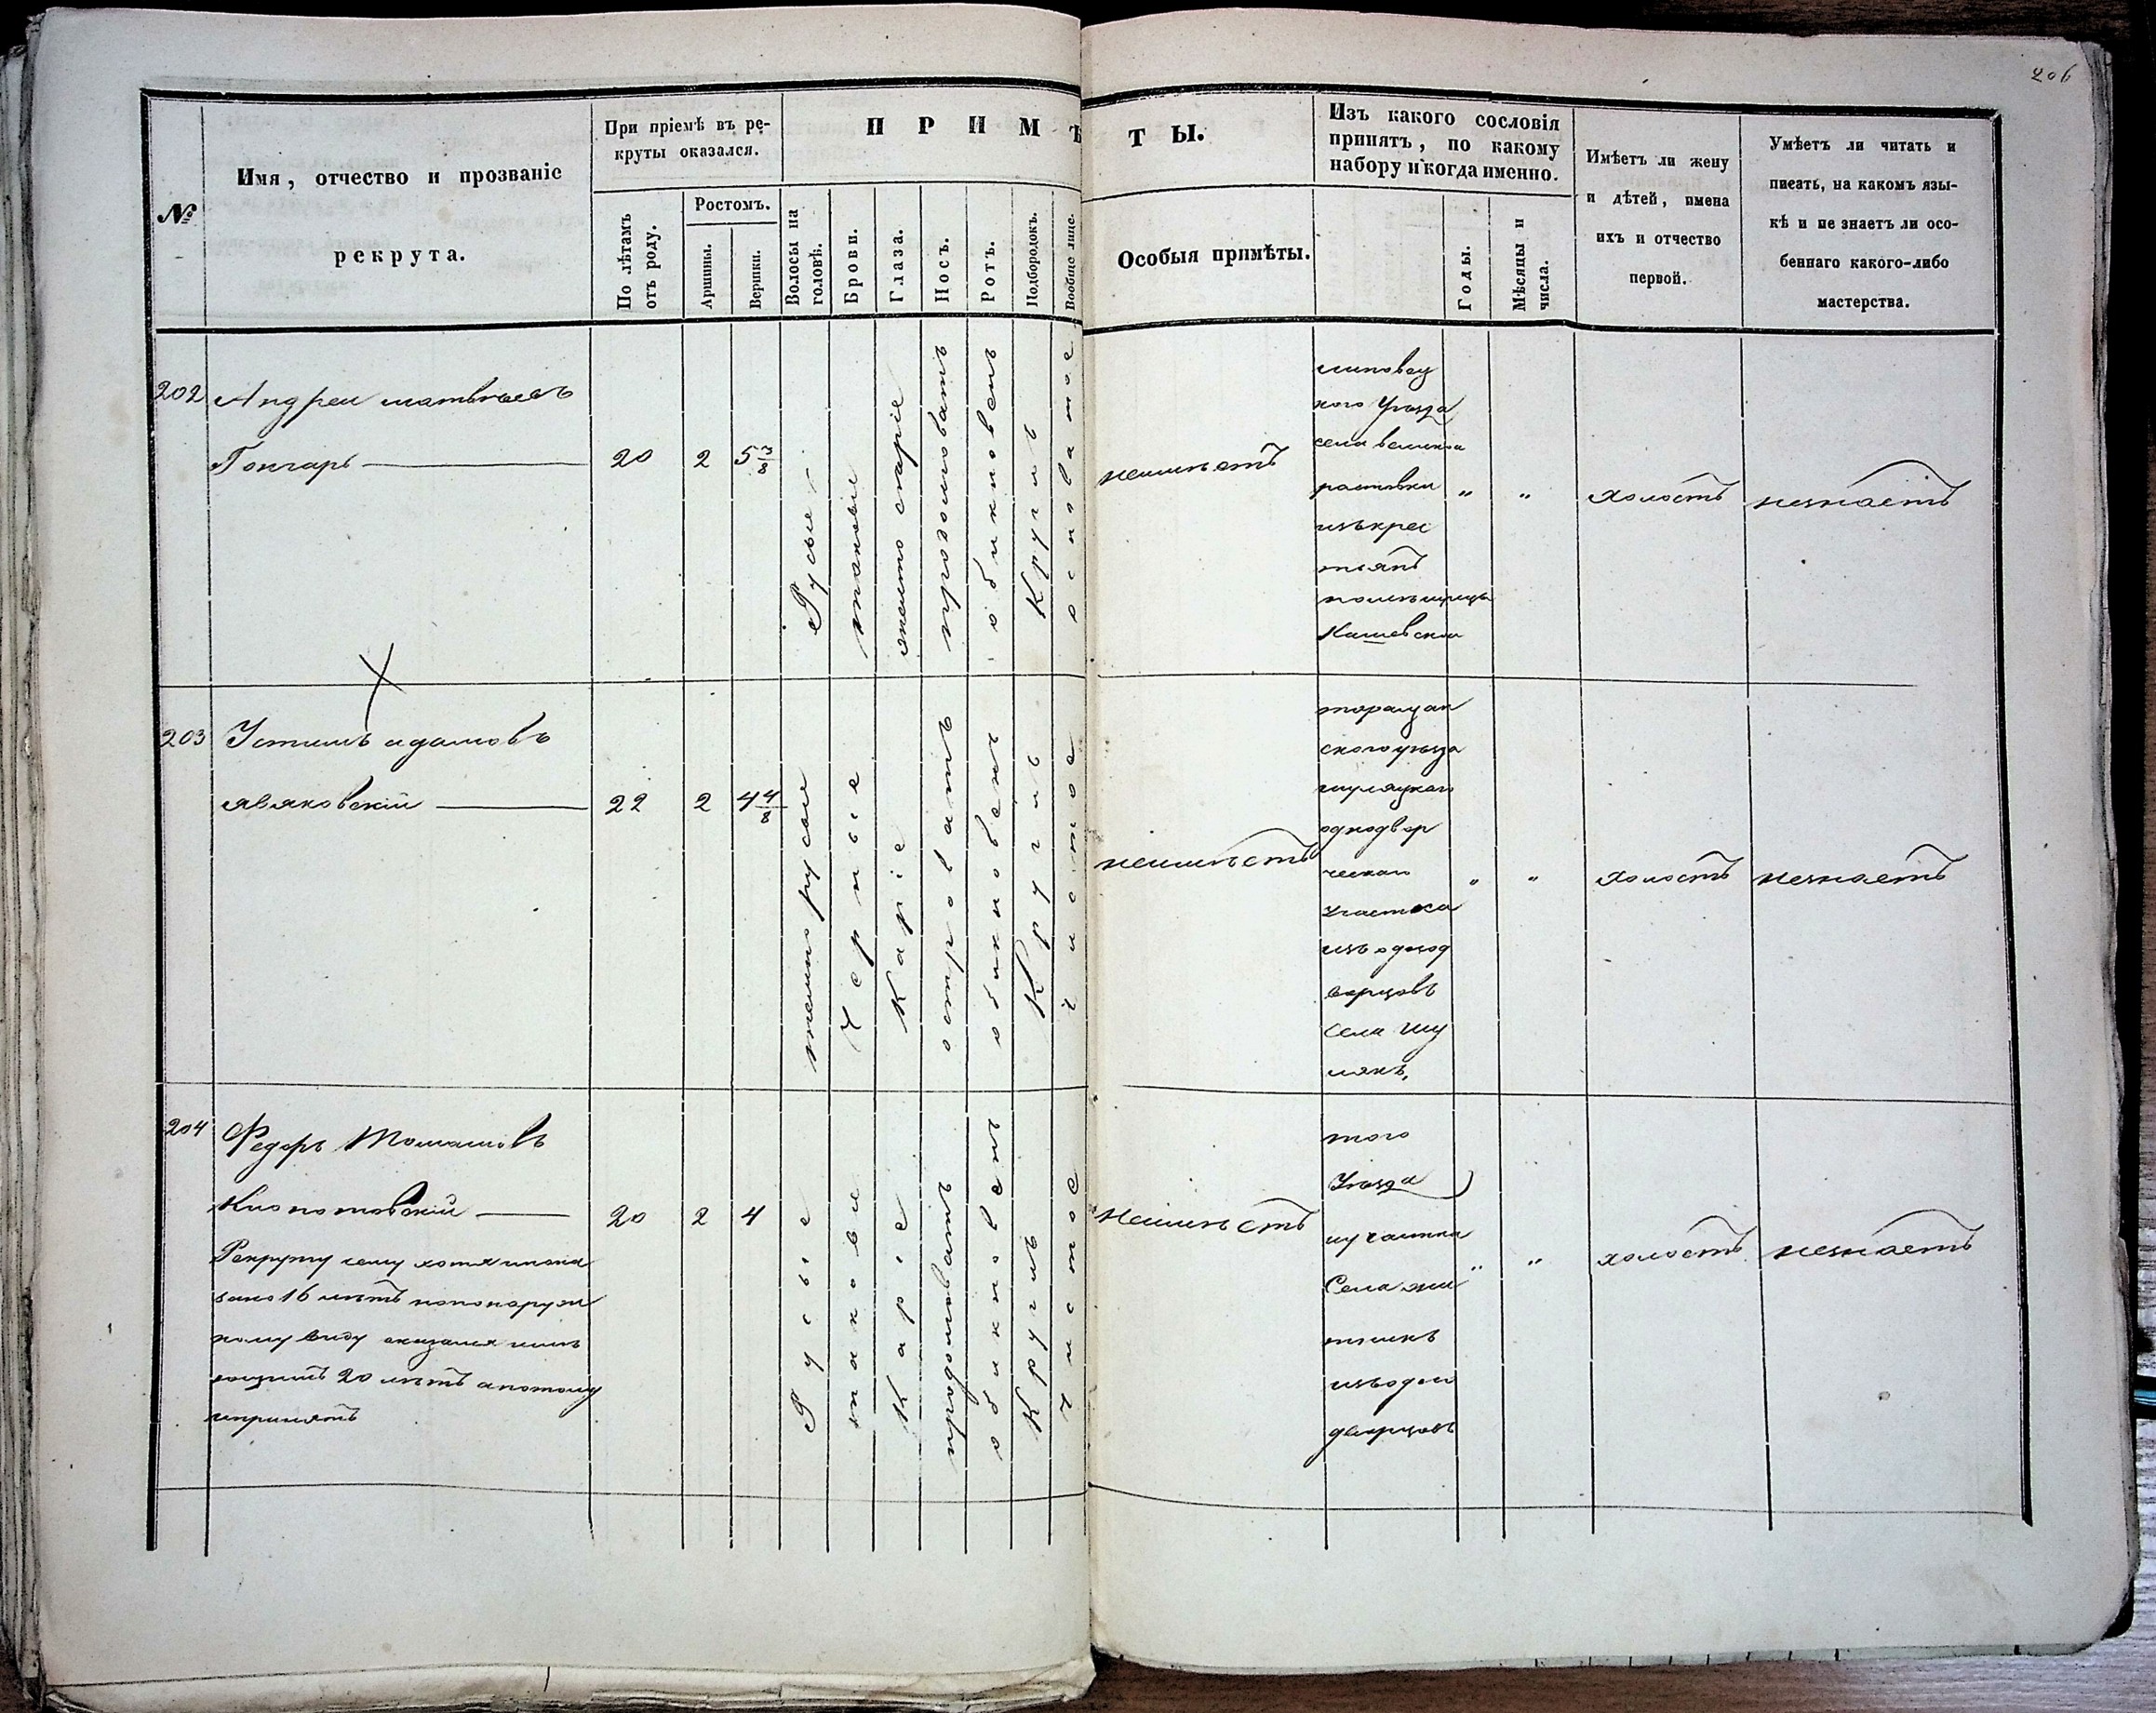 206
№
Имя, отчество и прозваніе
рекрута.
При пріемѣ въ ре-
круты оказался.
По лѣтамъ
отъ роду.
Ростомъ.
Аршины.
Вершки.
ПРИМѢТЫ.
Волосы на
головѣ.
Брови.
Глаза.
Носъ.
Ротъ.
Подбородокъ.
Вообще лице.
Особыя примѣты.
Изъ какого сословія
принятъ, по какому
набору и когда именно.
Годы.
Мѣсяцы и
числа.
Имѣетъ ли жену
и дѣтей, имена
ихъ и отчество
первой.
Умѣетъ ли читать и
писать, на какомъ язы-
кѣ и не знаетъ ли осо-
беннаго какого-либо
мастерства.
202
Андреи матвѣевъ
Гончарь
20
2
5 3/8
Русые
таковые
карие
продолговатъ
обикновенъ
Круглъ
осповатое
неимѣетъ
липовец
кого Уѣзда
села
растовки
изъ крес
тьянъ
помѣщицы
" "
холостъ
незнаетъ
203
Устимъ адамовъ
22
2
4 4/8
темнорусые
Черные
Каріе
островатъ
обикновенъ
Круглъ
чистое
неимѣетъ
таращан
ского уѣзда
шуляцкаго
однодвор
ческаго
участка
изъ однод
ворцовъ
Села Шу
лякъ,
" "
холостъ
незнаетъ
204
Федоръ Томашовъ
Клопотовскій
20
2
4
Рекруту сему хотя и пока
зано 16 лѣтъ но по наруж
ному виду оказался имѣ
ющимъ 20 лѣтъ а потому
и принятъ
Русые
таковые
Каріе
продолговатъ
обикновенъ
Круглъ
Чистое
неимѣетъ
того
Уѣзда
участка
Села жи
изъ одно
дворцовъ
" "
холостъ
незнаетъ